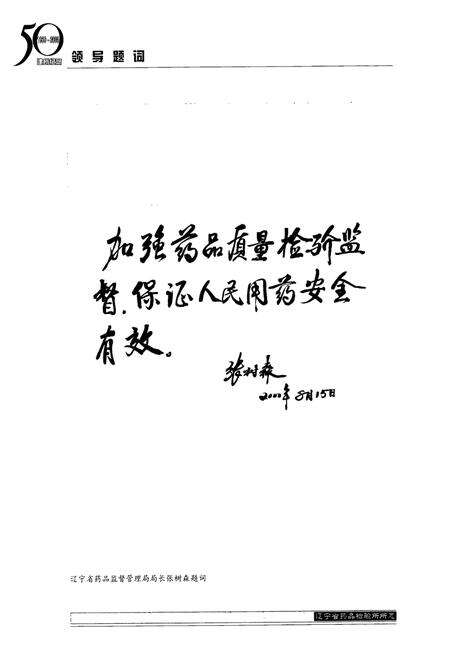 50
1950-2000
领导题词
加强药品质量检验监
督,保证人民用药安全
有效。
张树森
2000年8月15日
辽宁省药品监督管理局局长张树森题词
辽宁省药品检验所所志